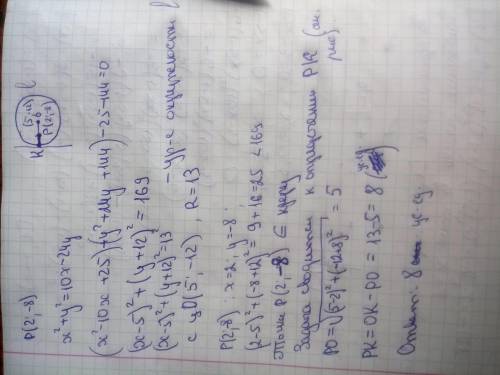 P(2;-8)
x²+y²=10x-24y
(x²-10x+25)+(y²+24y+144)-25-144=0
(x-5)²+(y+12)²=169
(x-5)²+(y+12)²=13² - ур-е окружности
с ц.O(5;-12), R=13
K
(5;-12)
O
P(2;-8)
l
P(2;-8): x=2; y=-8:
(2-5)²+(-8+12)²=9+16=25<169
Точка P(2;-8) ∈ кругу
Задача сводится к определению PK (см. рис)
PO=√(5-2)²+(-12+8)² = 5
PK=OK-PO=13-5=8 (ус.ед)
Ответ: 8 ус.ед.